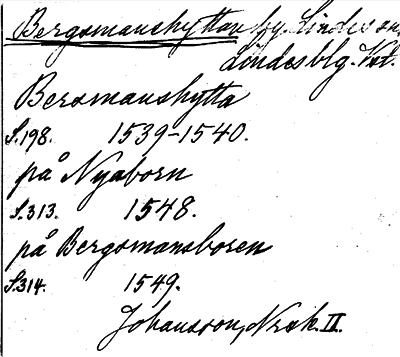 Bergsmanshyttan by. Lindes sn,
Lindesblg. Vst.
Bersmanshytta
S.198. 1539-1540.
på Nyaborn
S.313. 1548.
på Bergsmansboren
S.314. 1549.
Johansson, Nrsk. II.